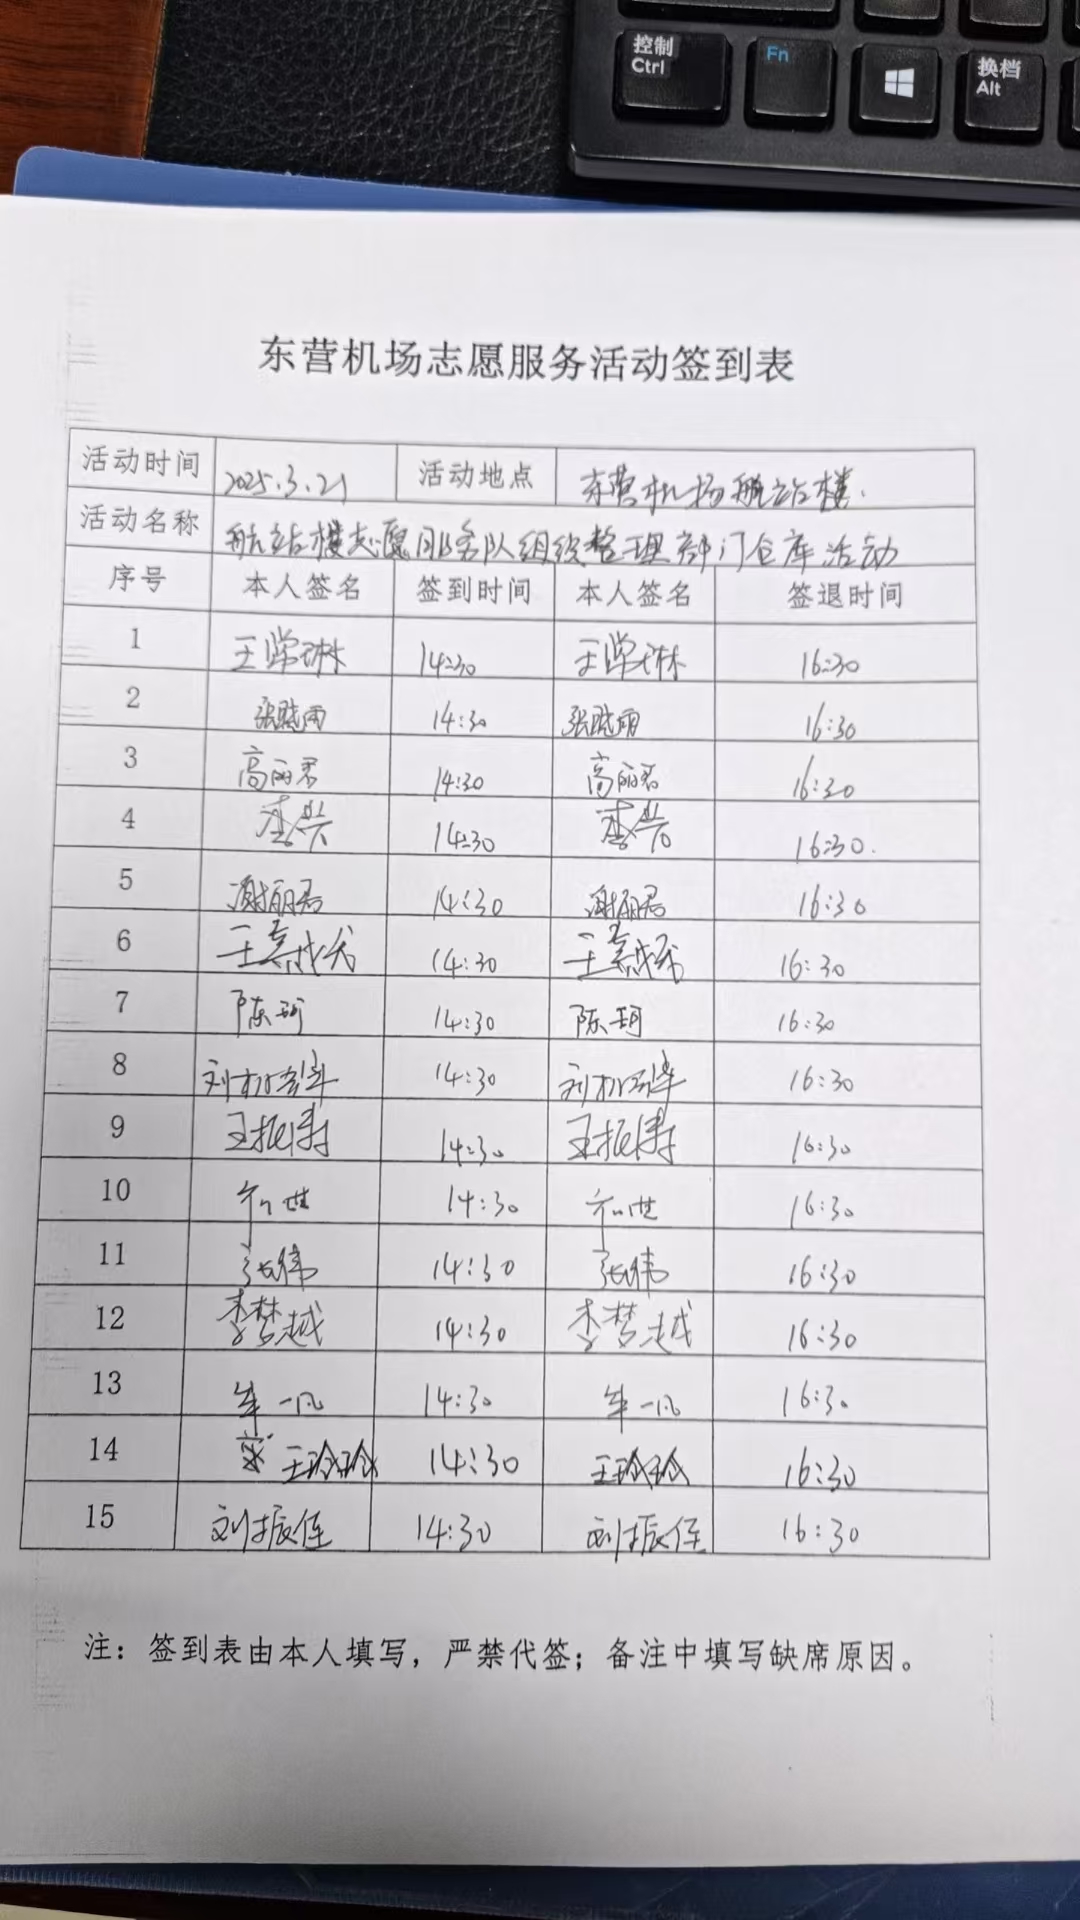 控制 Ctrl
Fn
换档 Alt
东营机场志愿服务活动签到表
活动时间 2025.3.21 活动地点 东营机场航站楼.
活动名称 航站楼志愿服务队组织整理部门仓库活动
序号 本人签名 签到时间 本人签名 签退时间
1 王学琳 14:30 王学琳 16:30
2 张晓雨 14:30 张晓雨 16:30
3 高丽君 14:30 高丽君 16:30
4 李兴 14:30 李兴 16:30.
5 谢丽君 14:30 谢丽君 16:30
6 14:30 16:30
7 陈珂 14:30 陈珂 16:30
8 14:30 16:30
9 王振涛 14:30 王振涛 16:30
10 14:30 16:30
11 张伟 14:30 张伟 16:30
12 李梦越 14:30 李梦越 16:30
13 牟一凡 14:30 牟一凡 16:30
14 王玲玲 14:30 王玲玲 16:30
15 刘振佳 14:30 刘振佳 16:30
注：签到表由本人填写，严禁代签；备注中填写缺席原因。